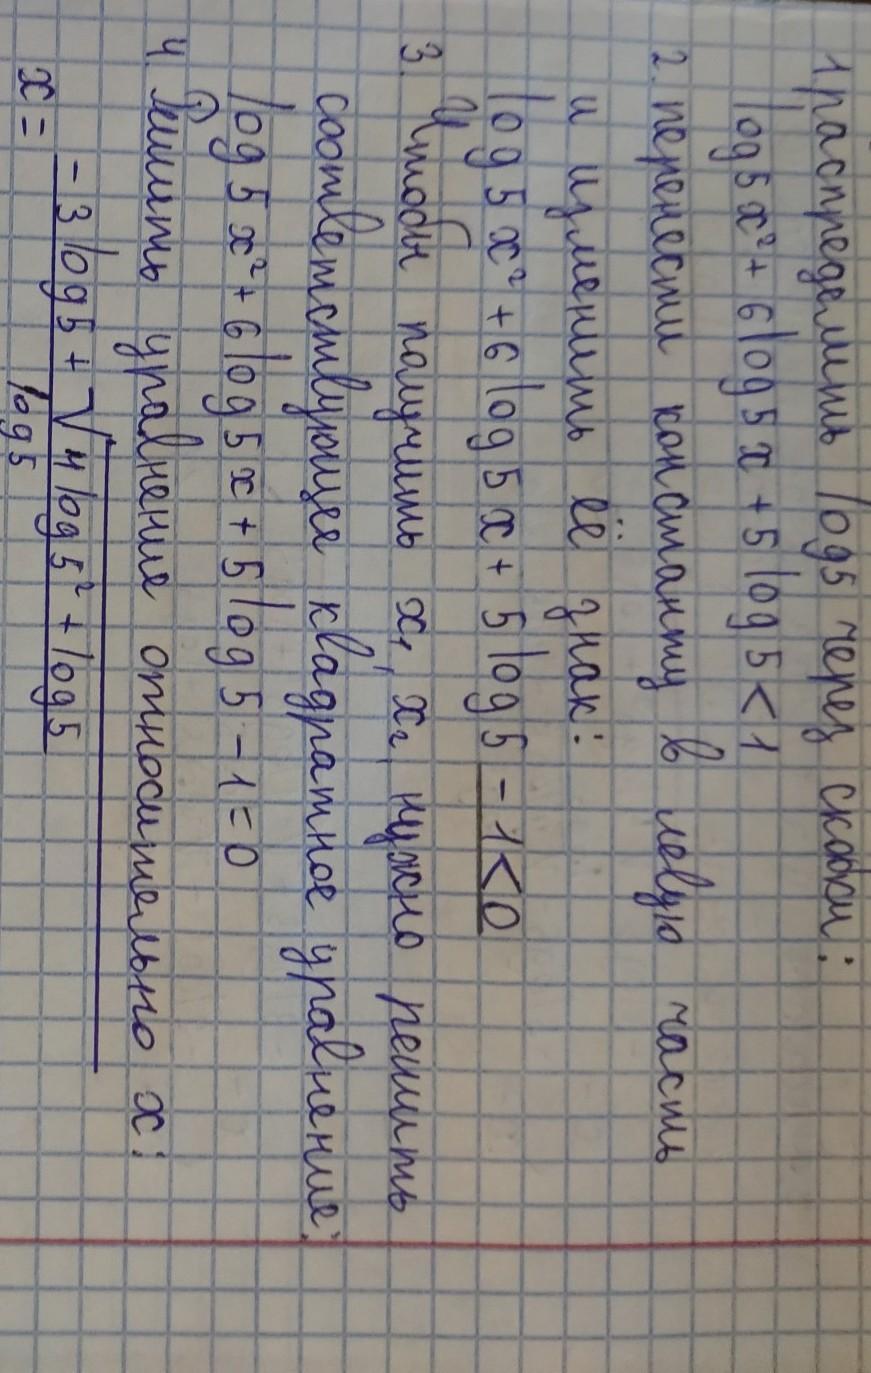 1. распределить log5 через скобки:
log5x²+6log5x+5log5<1
2. перенести константу в левую часть
и изменить её знак:
log5x²+6log5x+5log5-1<0
3. Чтобы получить x₁, x₂, нужно решить
соответствующее квадратное уравнение:
log5x²+6log5x+5log5-1=0
4. Решить уравнение относительно x:
x = -3log5+√4log5²+log5
log5